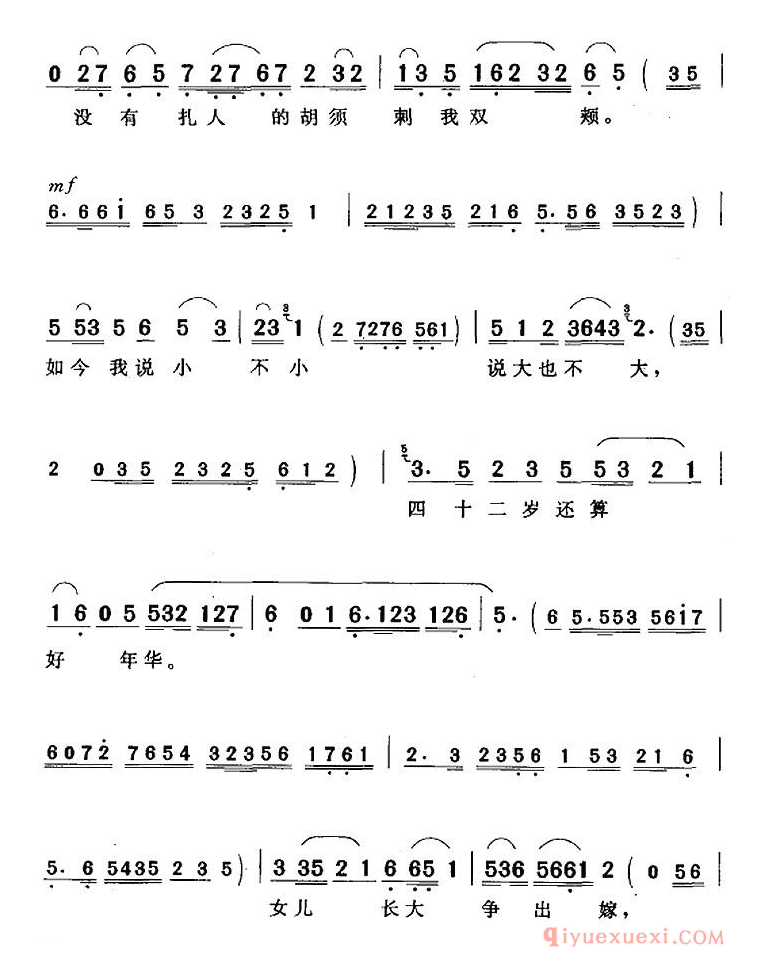 0 27 6 5 7 27 67 2 32 | 13 5 162 32 6 5 ( 35
没有扎人的胡须刺我双颊。
mf
6. 66i 65 3 2325 1 | 21235 216 5. 56 3523 )
5 53 5 6 5 3 | 23 3 1 ( 2 7276 561 ) | 5 1 2 3643 3 2. ( 35 |
如今我说小不小说大也不大，
2 035 2325 612 ) | 5 3. 5 2 3 5 53 2 1
四十二岁还算
1 6 0 5 532 127 | 6 0 1 6.123 126 | 5. ( 6 5.553 56i7 |
好年华。
6072 7654 32356 1761 | 2. 3 2356 1 53 21 6 |
5. 6 5435 2 3 5 ) | 3 35 2 1 6 65 1 | 536 5661 2 ( 0 56 |
女儿长大争出嫁，
qiyuexuexi.com